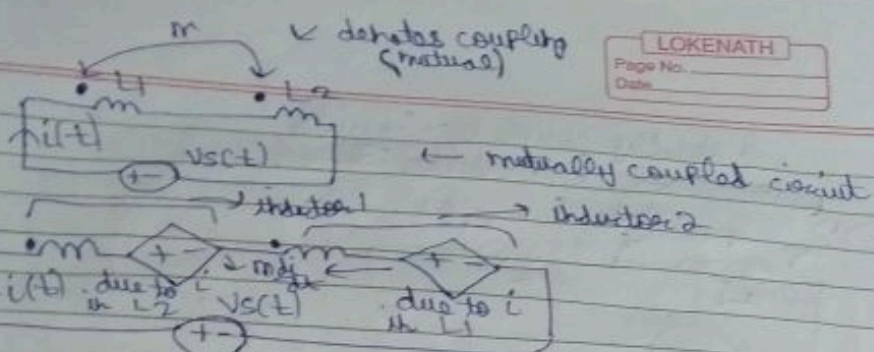 m ↙ denotes coupling
(mutual)
LOKENATH
Page No.
Date
L1 L2
i(t)
Vs(t)
+ -
← mutually coupled circuit
→ inductor 1 → inductor 2
+ - + -
← m di/dt ←
i(t) due to i Vs(t) due to i
in L2 in L1
+ -